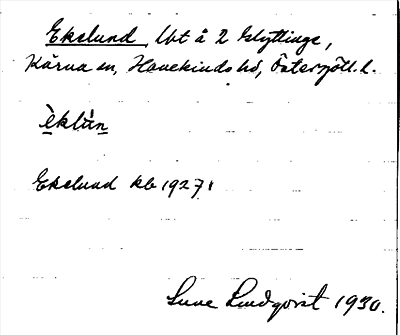 Ekelund, lht å 2 Klyttinge,
Kärna sn, Hanekinds hd, Östergötl. l.
èklùn
Ekelund kb 1927
Sune Lindqvist 1930.